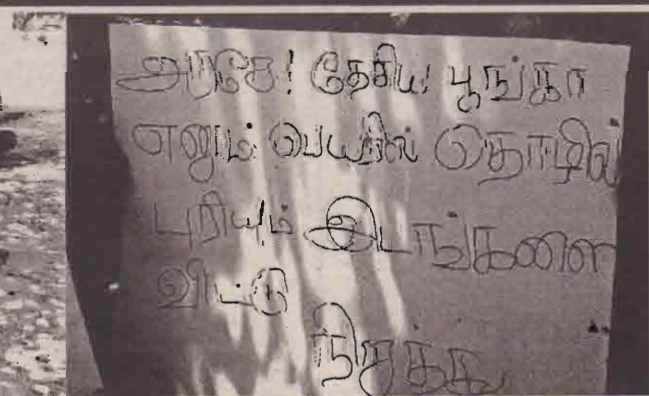 அரசே! தேசிய! பூங்கா
எனும் பெயரில் தொழில்
புரியும் இடங்களை
விட்டு
நிறுத்து